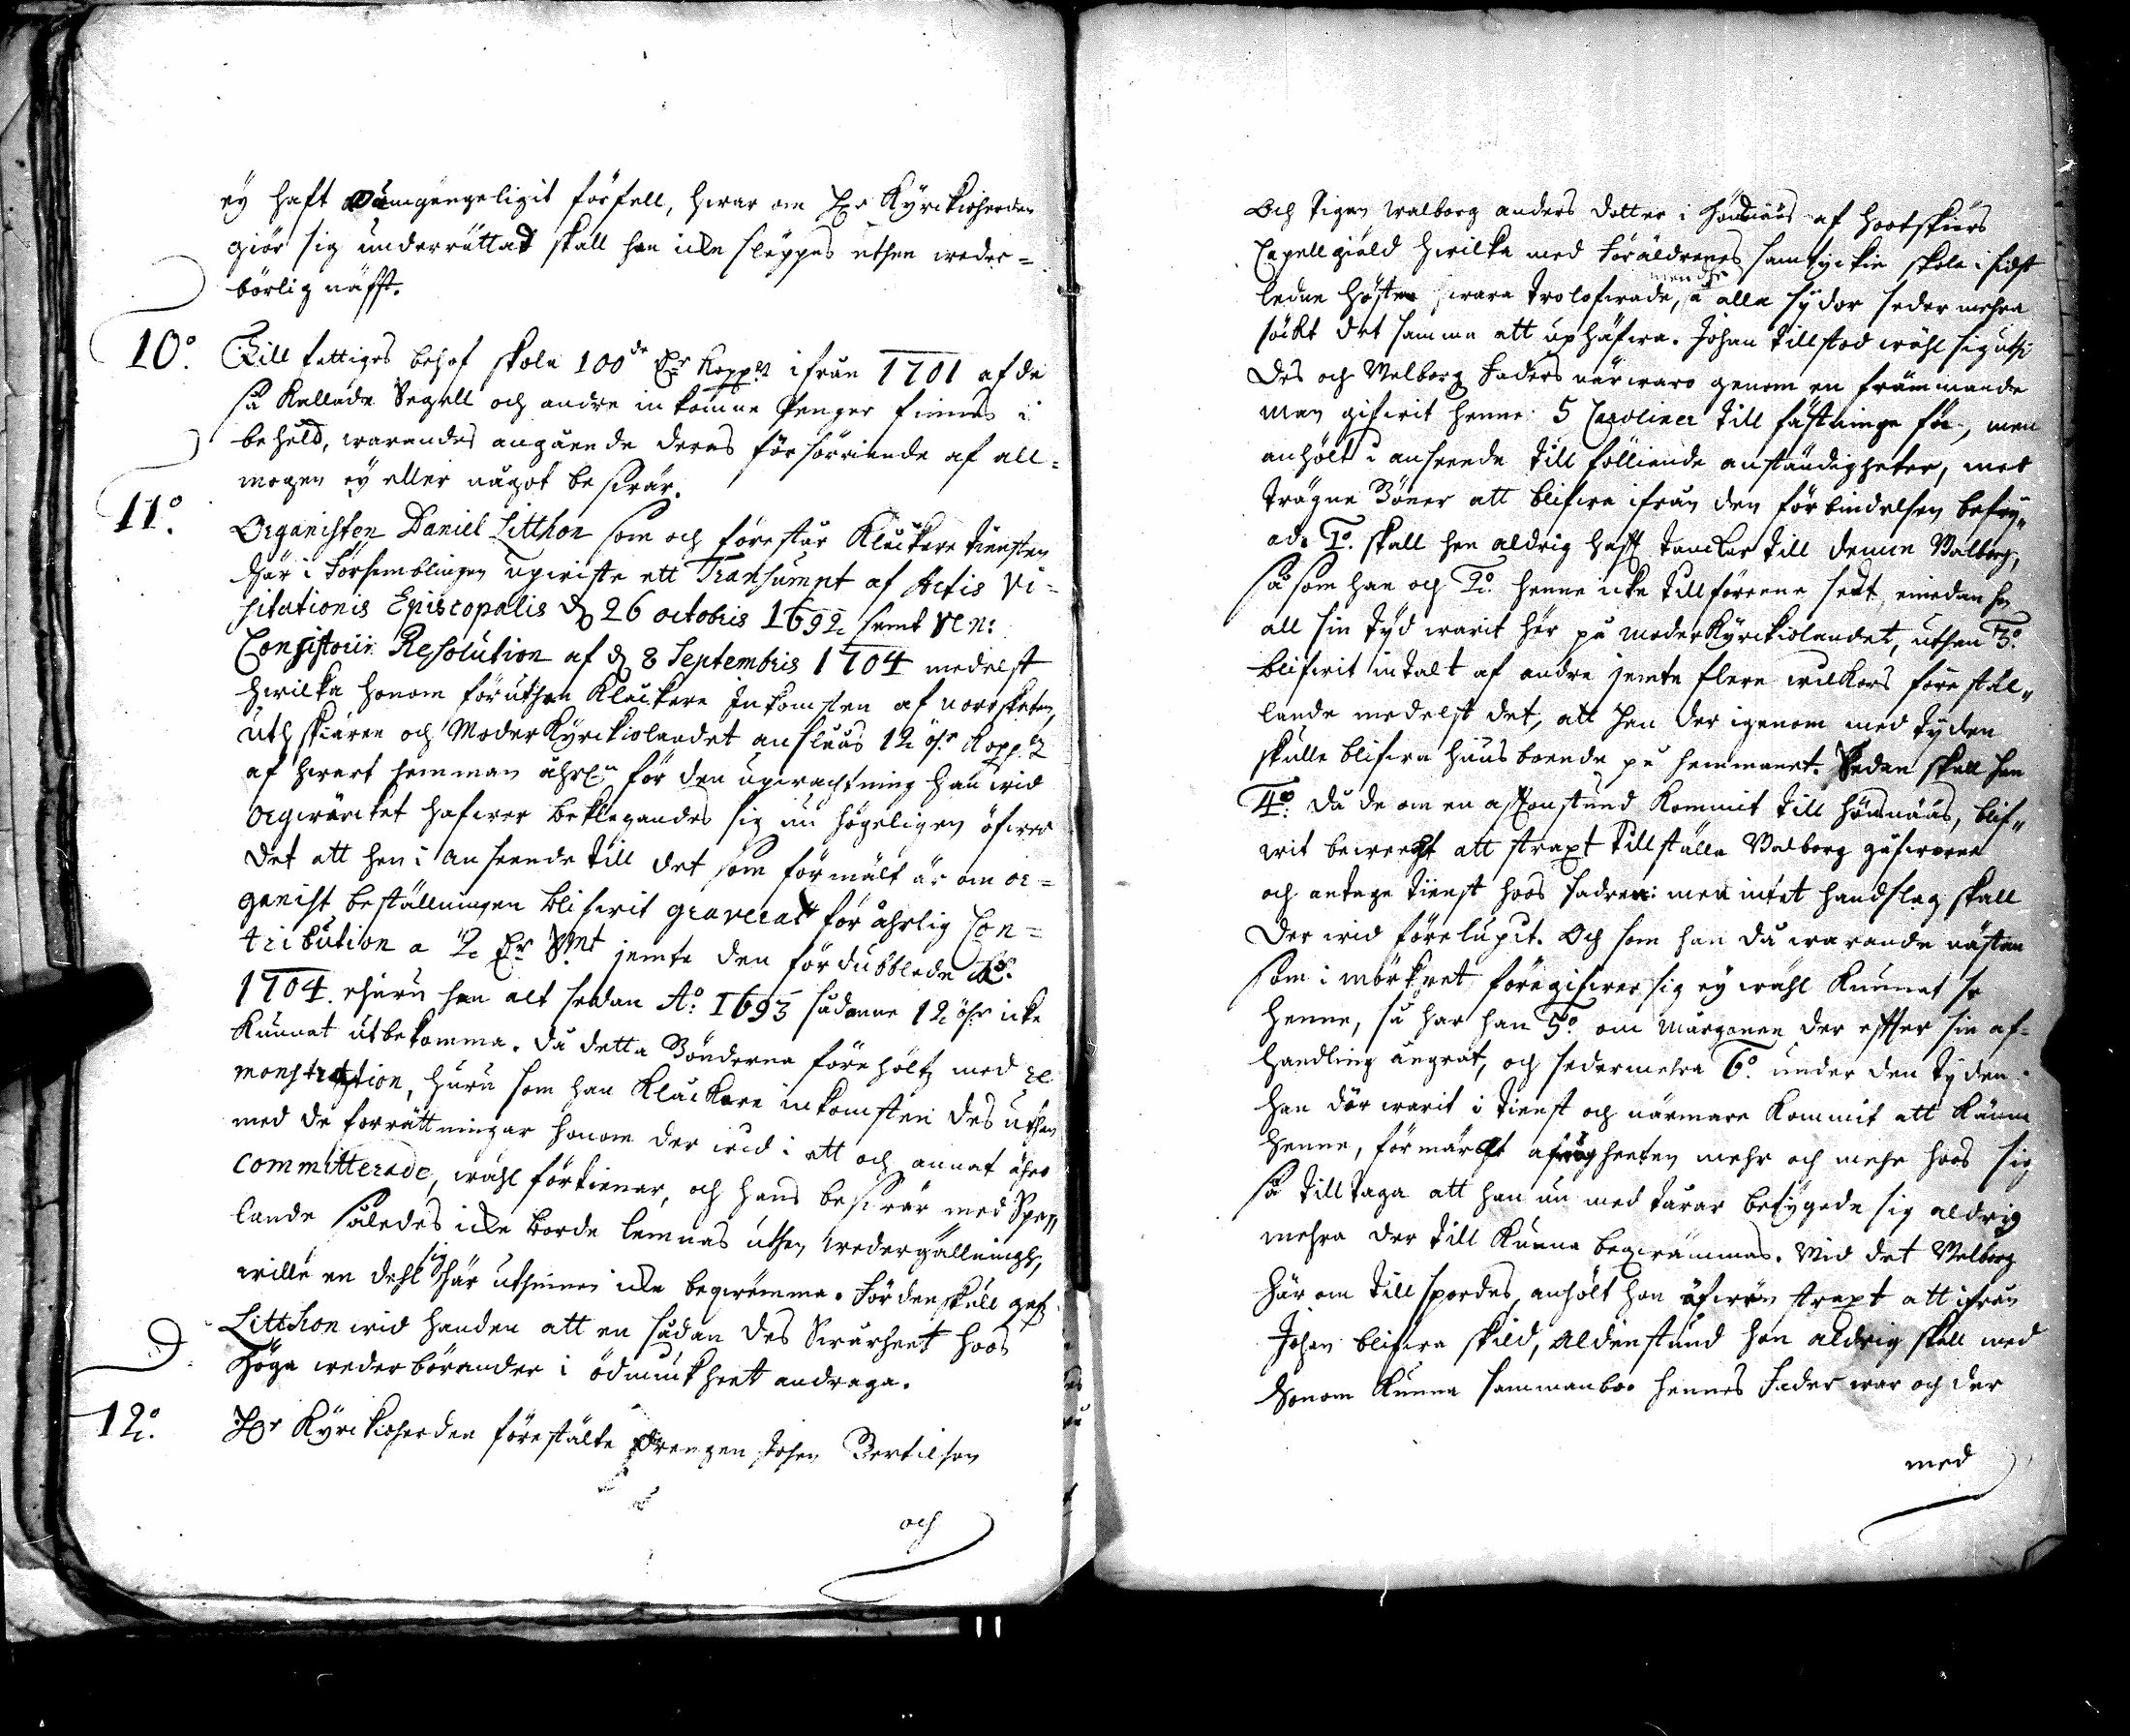 ey haft oumgengeligit förfell, hwar om Hr Kyrckioherden
giör sig underrättat skall han icke släppas uthan weder=
börlig näfst.
10o. Till fattiges behof skola 100de Dr Kopp:rt ifrån 1701 af de
så kallade Segell och andre inkomne penger finnas i
behåld, warandes angående deras försöriande af all=
mogen ey eller något beswär.
11o. Organisten Daniel Litthon som och förestår Kluckare tiensten
här i Församblingen upwiste ett Transumpt af Actis Vi=
sitationis Episcopalis d. 26 octobris 1692 samt Ven:
Consistorii Resolution af d. 8 Septembris 1704 medelst
hwilka honom föruthan Kluckare Inkomsten af norrskatan,
uthskiären och ModerKyrckiolandet anslaas 12 öre Kopp:rt
af hwart hemman åhrl:n för den upwachtning han wid
Orgwärcket hafwer beklagandes sig nu högeligen öfwer
det att han i anseende till det som förmält är om or=
ganist beställningen blifwit graverat för åhrlig Con=
tribution a 2 Dr Smt jemte den fördubblade Ao.
1704. ehuru han alt sedan Ao. 1693 sådanne 12 öhr icke
kunnat utbekomma. Då detta Bönderna förehöltz med re
monstration, huru som han Kluckare inkomsten des uthan
med de förrättningar honom der wid i ett och annat åhro
committerade, wähl förtienar, och hans beswär med Spe,,
lande således icke borde lemnas uthan wedergällningh,
wille en dehl sig här uthinnan icke beqwämma. Fördenskull gafz
Litthon wid handen att en sådan des Swårheet hoos
Höga wederbörander i ödmiukheet andraga.
12o. Hr Kyrckioherden förestälte Drengen Johan Bertilson
och
Och Pigan Walborg anders dotter i Hömnäs af hootskiärs
Capellgiäld hwilka med Föräldrenes samtyckie skola i sidst
ledne Hösten wara trolofwade, men dhe å alla sydor seder mehra
sökt det samma att uphäfwa. Johan tillstod wähl sig uthi
des och Walborg Faders närwaro genom en främmande
man gifwit henne 5 Caroliner till fästninge fä, men
anhölt i anseende till fölliande anständigheter, med
trägne Böner att blifwa ifrån den förbindelsen befry,,
ad. 1o. skall han aldrig haft tanckar till denne Walborg,
såsom han och 2o. henne icke tillförenne sedt, emedan ho
all sin tyd warit här på moderKyrckiolandet, uthan 3o.
blifwit intalt af andre jemte flere wilkors förestäl,,
lande medelst det, att han der igenom med tyden
skulle blifwa huusbonde på hemmanet. Sedan skall han
4o. då de om en afftonstund kommit till Hömnääs, blif,,
wit bewecht att straxt tillställa Walborg gåfworne
och antaga tienst hoos fadren: men intet handslag skall
der wid förelupit. Och som han då warande nästan
som i mörkret föregifwer sig ey wähl kunnat se
henne, så har han 5o. om morgonen der efter sin af=
handling ångrat, och sedermehra 6o. under den tyden
han där warit i tienst och närmare kommit att känna
henne, förmärkt afwogheeten mehr och mehr hoos sig
så tilltaga att han nu med tårar betygade sig aldrig
mehra der till kunna beqwämmas. Wid det Walborg
här om tillspordes, anhölt hon äfwen straxt att ifrån
Johan blifwa skild, aldenstund hon aldrig skall med
honom kunna sammanbo. hennes Fader war och der
med
11